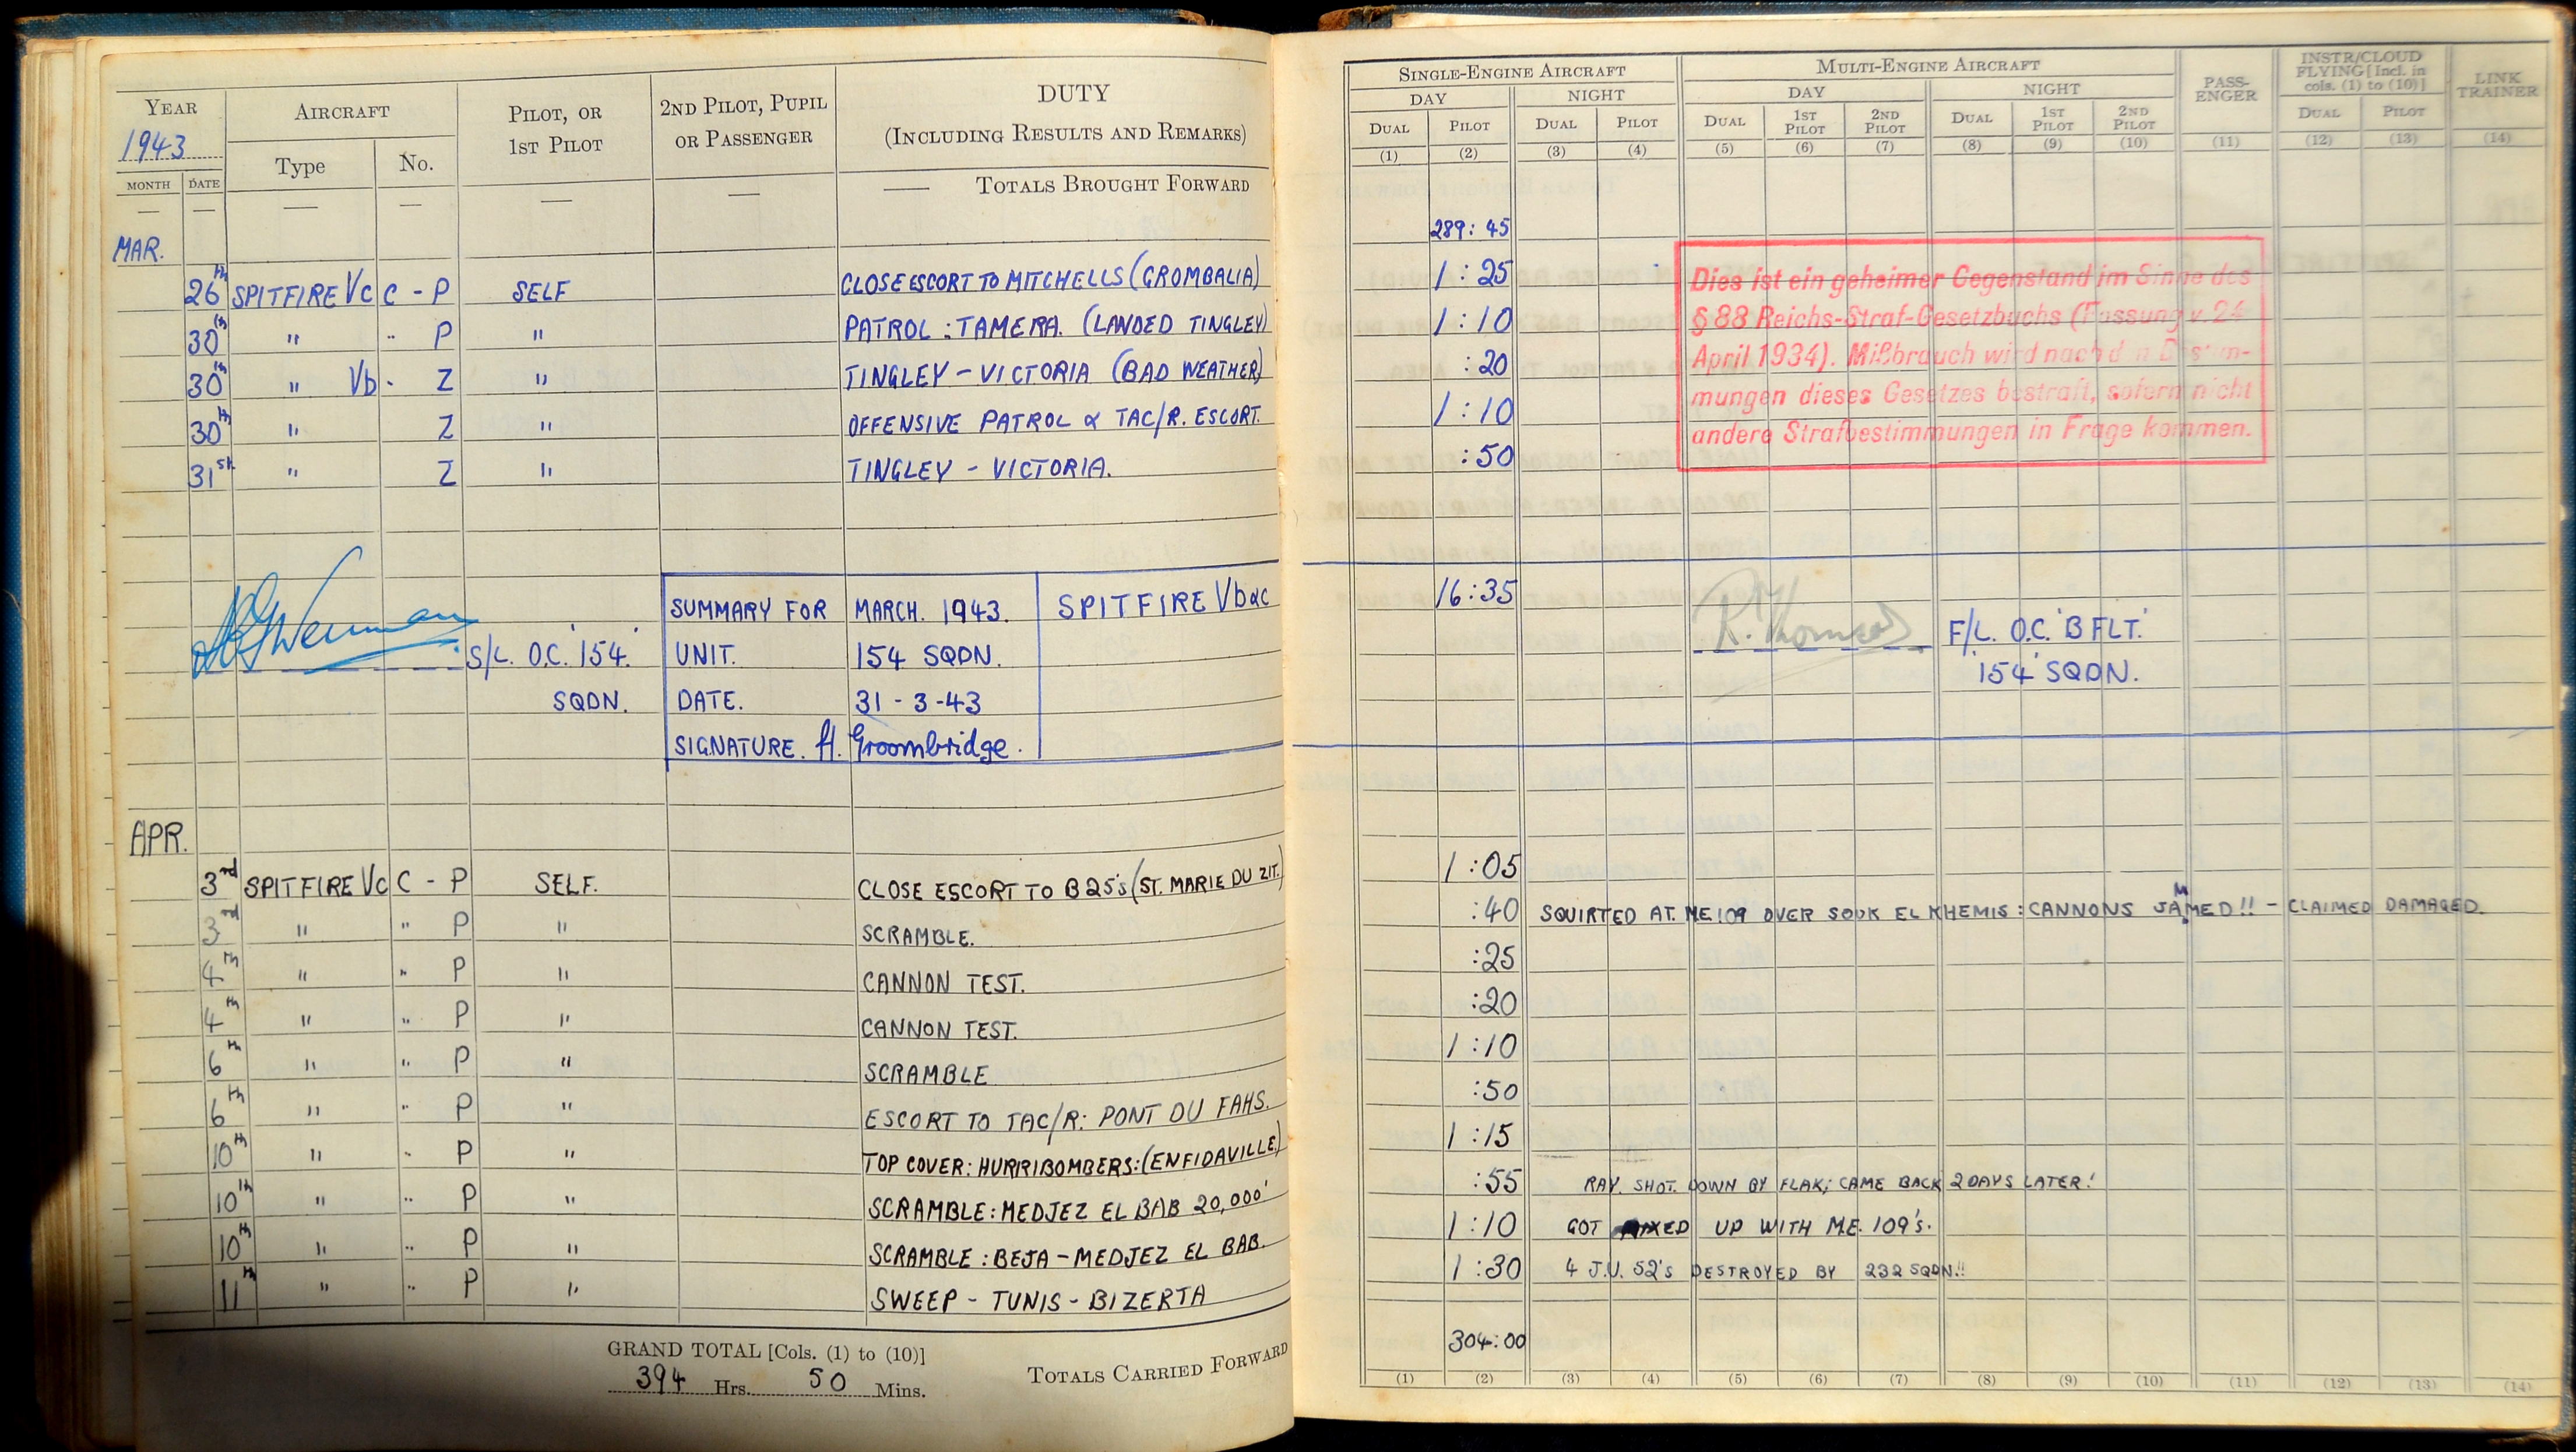 YEAR AIRCRAFT PILOT, OR 1ST PILOT 2ND PILOT, PUPIL OR PASSENGER DUTY (INCLUDING RESULTS AND REMARKS)
1943 Type No.
MONTH DATE
— — — — — — — TOTALS BROUGHT FORWARD
MAR.
26th SPITFIRE Vc C - P SELF CLOSE ESCORT TO MITCHELLS (GROMBALIA)
30th " " P " PATROL : TAMERA. (LANDED TINGLEY)
30th " Vb - Z " TINGLEY - VICTORIA (BAD WEATHER)
30th " Z " OFFENSIVE PATROL & TAC/R. ESCORT.
31st " Z " TINGLEY - VICTORIA.
SUMMARY FOR MARCH. 1943. SPITFIRE Vb&c
S/L. O.C. '154' UNIT. 154 SQDN.
SQDN. DATE. 31 - 3 - 43
SIGNATURE. A. Groombridge.
APR.
3rd SPITFIRE Vc C - P SELF. CLOSE ESCORT TO B25's (ST. MARIE DU ZIT.)
3rd " " P " SCRAMBLE.
4th " " P " CANNON TEST.
4th " " P " CANNON TEST.
6th " " P " SCRAMBLE
6th " " P " ESCORT TO TAC/R: PONT DU FAHS.
10th " " P " TOP COVER: HURRIBOMBERS: (ENFIDAVILLE)
10th " " P " SCRAMBLE: MEDJEZ EL BAB 20,000'
10th " " P " SCRAMBLE : BEJA - MEDJEZ EL BAB.
11th " " P " SWEEP - TUNIS - BIZERTA
GRAND TOTAL [Cols. (1) to (10)]
394 Hrs. 50 Mins.
TOTALS CARRIED FORWARD
SINGLE-ENGINE AIRCRAFT MULTI-ENGINE AIRCRAFT PASS-ENGER INSTR/CLOUD FLYING [Incl. in cols. (1) to (10)] LINK TRAINER
DAY NIGHT DAY NIGHT
DUAL PILOT DUAL PILOT DUAL 1ST PILOT 2ND PILOT DUAL 1ST PILOT 2ND PILOT DUAL PILOT
(1) (2) (3) (4) (5) (6) (7) (8) (9) (10) (11) (12) (13) (14)
289: 45
1 : 25
1 : 10
: 20
1 : 10
: 50
Dies ist ein geheimer Gegenstand im Sinne des
§ 88 Reichs-Straf-Gesetzbuchs (Fassung v. 24
April 1934). Mißbrauch wird nach den Bestim-
mungen dieses Gesetzes bestraft, sofern nicht
andere Strafbestimmungen in Frage kommen.
16:35
F/L. O.C. 'B FLT.'
'154' SQDN.
1 : 05
: 40 SQUIRTED AT. ME109 OVER SOUK EL KHEMIS : CANNONS JAMMED!! - CLAIMED DAMAGED.
:25
:20
1 :10
:50
1 :15
:55 RAY. SHOT. DOWN BY FLAK; CAME BACK 2 DAYS LATER!
1 :10 GOT MIXED UP WITH M.E. 109's.
1 :30 4 J.U. 52's DESTROYED BY 232 SQDN.!!
304:00
(1) (2) (3) (4) (5) (6) (7) (8) (9) (10) (11) (12) (13) (14)